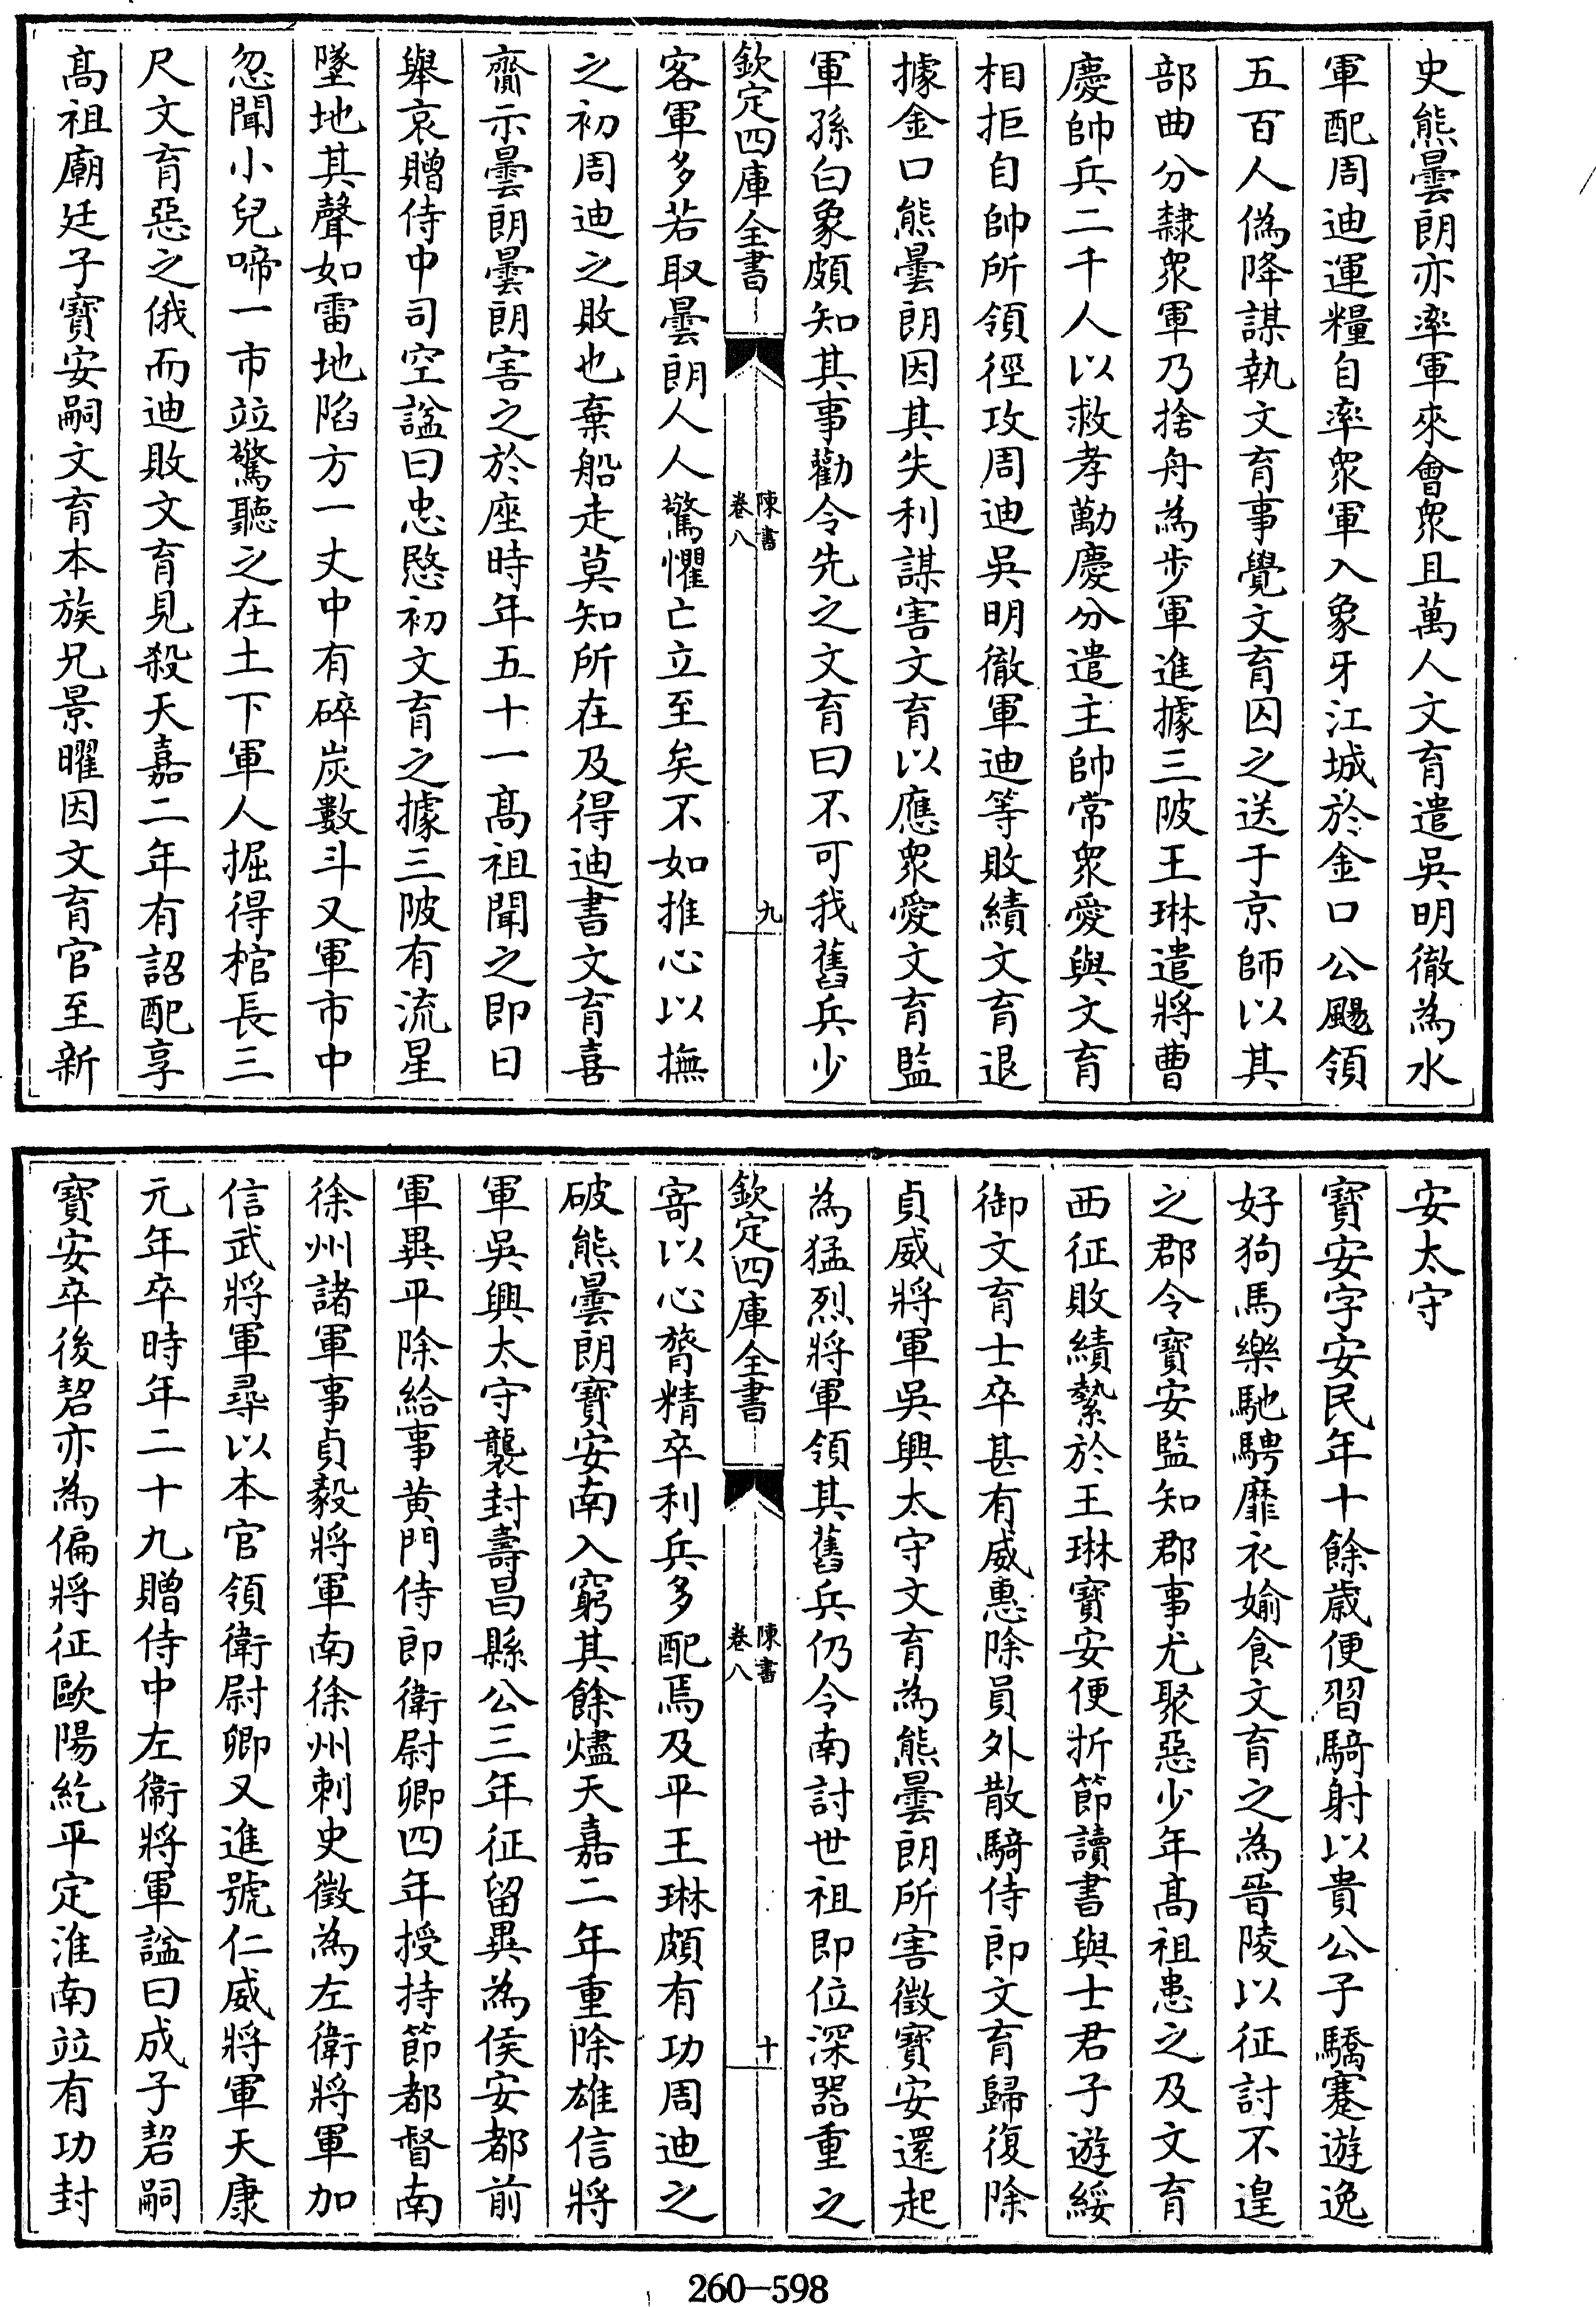 史熊曇朗亦率軍來會衆且萬人文育遣吳明徹為水
軍配周迪運糧自率衆軍入象牙江城於金口公颺領
五百人偽降謀執文育事覺文育囚之送于京師以其
部曲分隸衆軍乃捨舟為步軍進據三陂王琳遣將曹
慶帥兵二千人以救孝勱慶分遣主帥常衆愛與文育
相拒自帥所領徑攻周迪吳明徹軍迪等敗績文育退
據金口熊曇朗因其失利謀害文育以應衆愛文育監
軍孫白象頗知其事勸令先之文育曰不可我舊兵少
欽定四庫全書
陳書
卷八
九
客軍多若取曇朗人人驚懼亡立至矣不如推心以撫
之初周迪之敗也棄船走莫知所在及得迪書文育喜
齎示曇朗曇朗害之於座時年五十一高祖聞之即日
舉哀贈侍中司空諡曰忠愍初文育之據三陂有流星
墜地其聲如雷地陷方一丈中有碎炭數斗又軍市中
忽聞小兒啼一市竝驚聽之在土下軍人掘得棺長三
尺文育惡之俄而迪敗文育見殺天嘉二年有詔配享
高祖廟廷子寶安嗣文育本族兄景曜因文育官至新
安太守
寶安字安民年十餘歲便習騎射以貴公子驕蹇遊逸
好狗馬樂馳騁靡衣媮食文育之為晉陵以征討不遑
之郡令寶安監知郡事尤聚惡少年高祖患之及文育
西征敗績縶於王琳寶安便折節讀書與士君子遊綏
御文育士卒甚有威惠除員外散騎侍郎文育歸復除
貞威將軍吳興太守文育為熊曇朗所害徵寶安還起
為猛烈將軍領其舊兵仍令南討世祖即位深器重之
欽定四庫全書
陳書
卷八
十
寄以心膂精卒利兵多配焉及平王琳頗有功周迪之
破熊曇朗寶安南入窮其餘燼天嘉二年重除雄信將
軍吳興太守襲封壽昌縣公三年征留異為侯安都前
軍異平除給事黃門侍郎衛尉卿四年授持節都督南
徐州諸軍事貞毅將軍南徐州刺史徵為左衛將軍加
信武將軍尋以本官領衛尉卿又進號仁威將軍天康
元年卒時年二十九贈侍中左衞將軍諡曰成子䂮嗣
寶安卒後䂮亦為偏將征歐陽紇平定淮南竝有功封
260-598